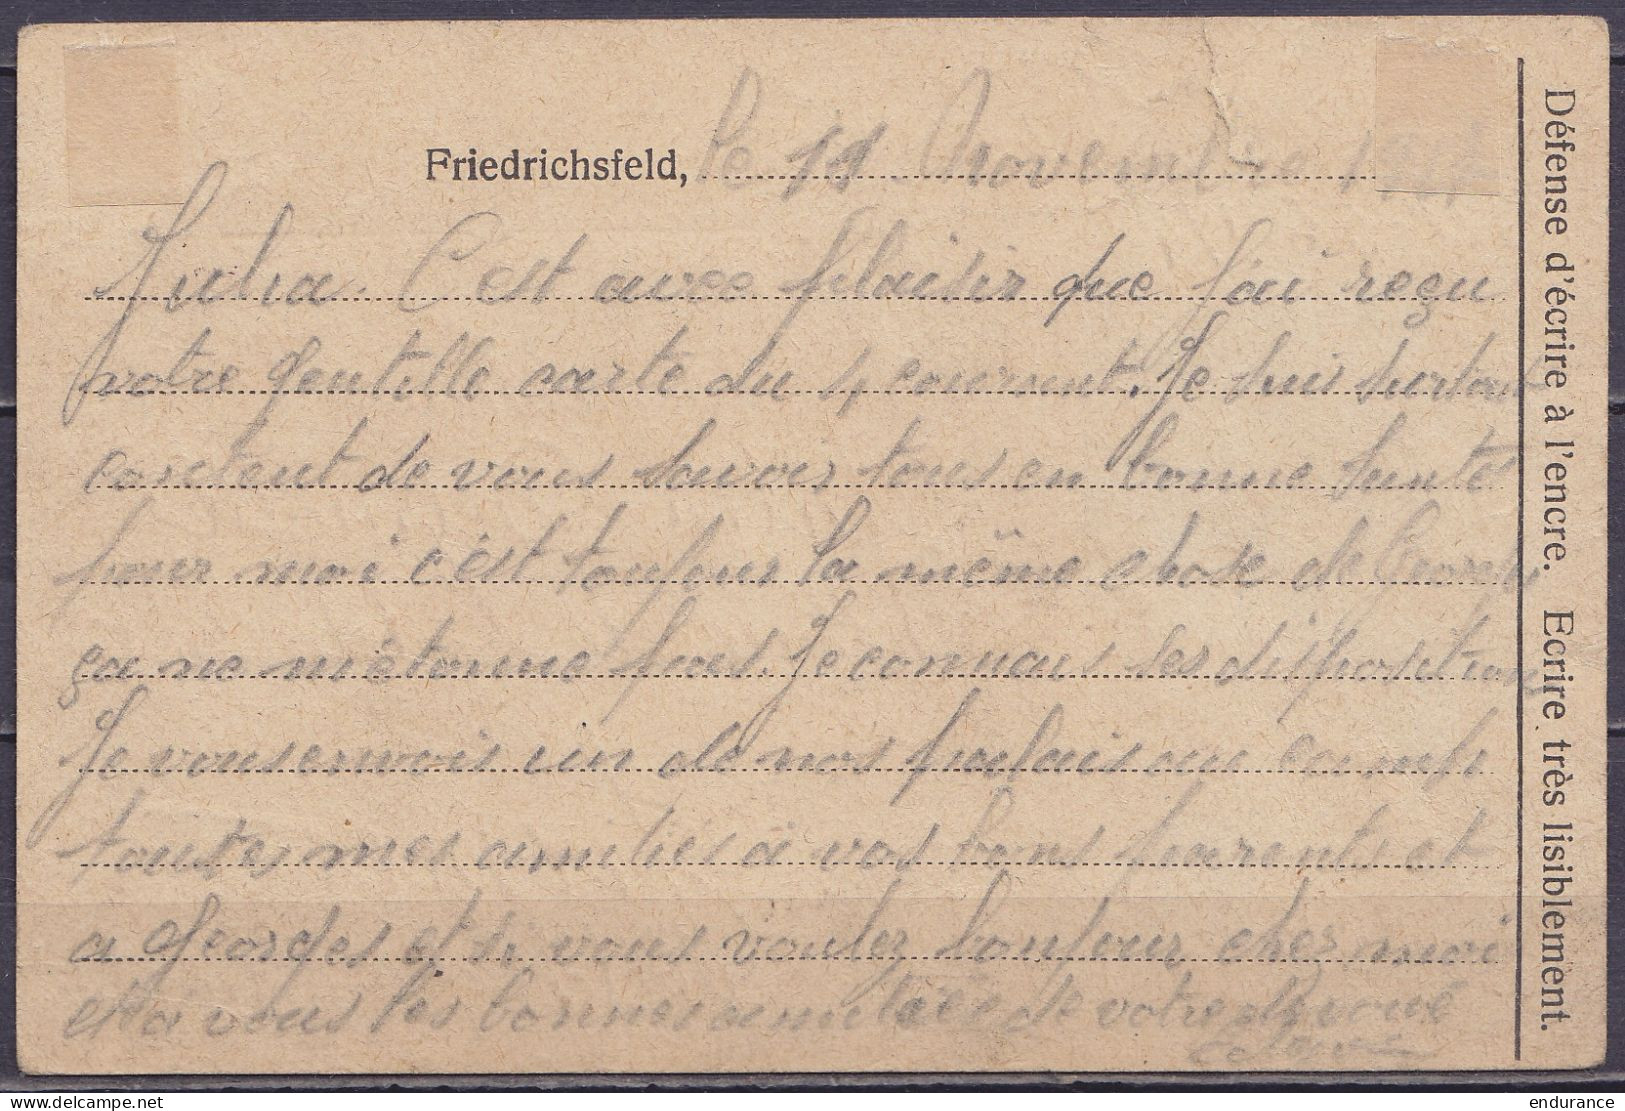 Friedrichsfeld, le 11 Novembre 191
Julia. C'est avec plaisir que j'ai reçu
votre gentille carte du 4 courant. Je suis surtout
content de vous savoir tous en bonne santé
pour moi c'est toujours la même chose de Georges
ça ne m'étonne pas. Je connais ses dispositions
Je vous envois un de nos palais au camp
toutes mes amitiés à vos bons parents et
a Georges et si vous voulez bonjour chez moi
et à vous les bonnes amitiées de votre dévoué
Défense d'écrire à l'encre. Ecrire très lisiblement.
delcampe.net
endurance